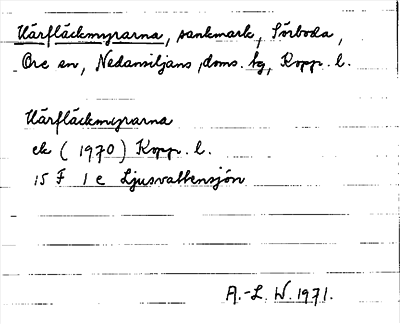 Kärfläckmyrarna, sankmark, Sörboda,
Ore sn, Nedansiljans doms. hg, Kopp. l.
Kärfläckmyrarna
ek (1970) Kopp. l.
15 F 1 e Ljusvattensjön
A.-L. W. 1971.